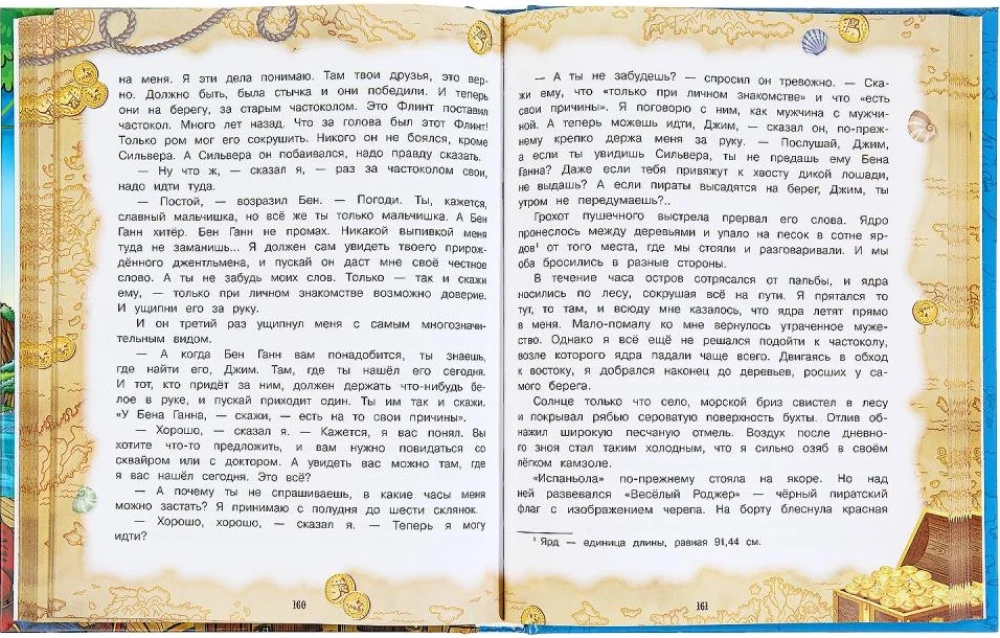 на меня. Я эти дела понимаю. Там твои друзья, это вер-
но. Должно быть, была стычка и они победили. И теперь
они на берегу, за старым частоколом. Это Флинт поставил
частокол. Много лет назад. Что за голова был этот Флинт!
Только ром мог его сокрушить. Никого он не боялся, кроме
Сильвера. А Сильвера он побаивался, надо правду сказать.
— Ну что ж, — сказал я, — раз за частоколом свои,
надо идти туда.
— Постой, — возразил Бен. — Погоди. Ты, кажется,
славный мальчишка, но всё же ты только мальчишка. А Бен
Ганн хитёр. Бен Ганн не промах. Никакой выпивкой меня
туда не заманишь... Я должен сам увидеть твоего прирож-
дённого джентльмена, и пускай он даст мне своё честное
слово. А ты не забудь моих слов. Только — так и скажи
ему, — только при личном знакомстве возможно доверие.
И ущипни его за руку.
И он третий раз ущипнул меня с самым многозначи-
тельным видом.
— А когда Бен Ганн вам понадобится, ты знаешь,
где найти его, Джим. Там, где ты нашёл его сегодня.
И тот, кто придёт за ним, должен держать что-нибудь бе-
лое в руке, и пускай приходит один. Ты им так и скажи.
«У Бена Ганна, — скажи, — есть на то свои причины».
— Хорошо, — сказал я. — Кажется, я вас понял. Вы
хотите что-то предложить, и вам нужно повидаться со
сквайром или с доктором. А увидеть вас можно там, где
я вас нашёл сегодня. Это всё?
— А почему ты не спрашиваешь, в какие часы меня
можно застать? Я принимаю с полудня до шести склянок.
— Хорошо, хорошо, — сказал я. — Теперь я могу
идти?
160
— А ты не забудешь? — спросил он тревожно. — Ска-
жи ему, что «только при личном знакомстве» и что «есть
свои причины». Я поговорю с ним, как мужчина с мужчи-
ной. А теперь можешь идти, Джим, — сказал он, по-преж-
нему крепко держа меня за руку. — Послушай, Джим,
а если ты увидишь Сильвера, ты не предашь ему Бена
Ганна? Даже если тебя привяжут к хвосту дикой лошади,
не выдашь? А если пираты высадятся на берег, Джим, ты
утром не передумаешь?..
Грохот пушечного выстрела прервал его слова. Ядро
пронеслось между деревьями и упало на песок в сотне яр-
дов¹ от того места, где мы стояли и разговаривали. И мы
оба бросились в разные стороны.
В течение часа остров сотрясался от пальбы, и ядра
носились по лесу, сокрушая всё на пути. Я прятался то
тут, то там, и всюду мне казалось, что ядра летят прямо
в меня. Мало-помалу ко мне вернулось утраченное муже-
ство. Однако я всё ещё не решался подойти к частоколу,
возле которого ядра падали чаще всего. Двигаясь в обход
к востоку, я добрался наконец до деревьев, росших у са-
мого берега.
Солнце только что село, морской бриз свистел в лесу
и покрывал рябью сероватую поверхность бухты. Отлив об-
нажил широкую песчаную отмель. Воздух после дневно-
го зноя стал таким холодным, что я сильно озяб в своём
лёгком камзоле.
«Испаньола» по-прежнему стояла на якоре. Но над
ней развевался «Весёлый Роджер» — чёрный пиратский
флаг с изображением черепа. На борту блеснула красная
¹ Ярд — единица длины, равная 91,44 см.
161